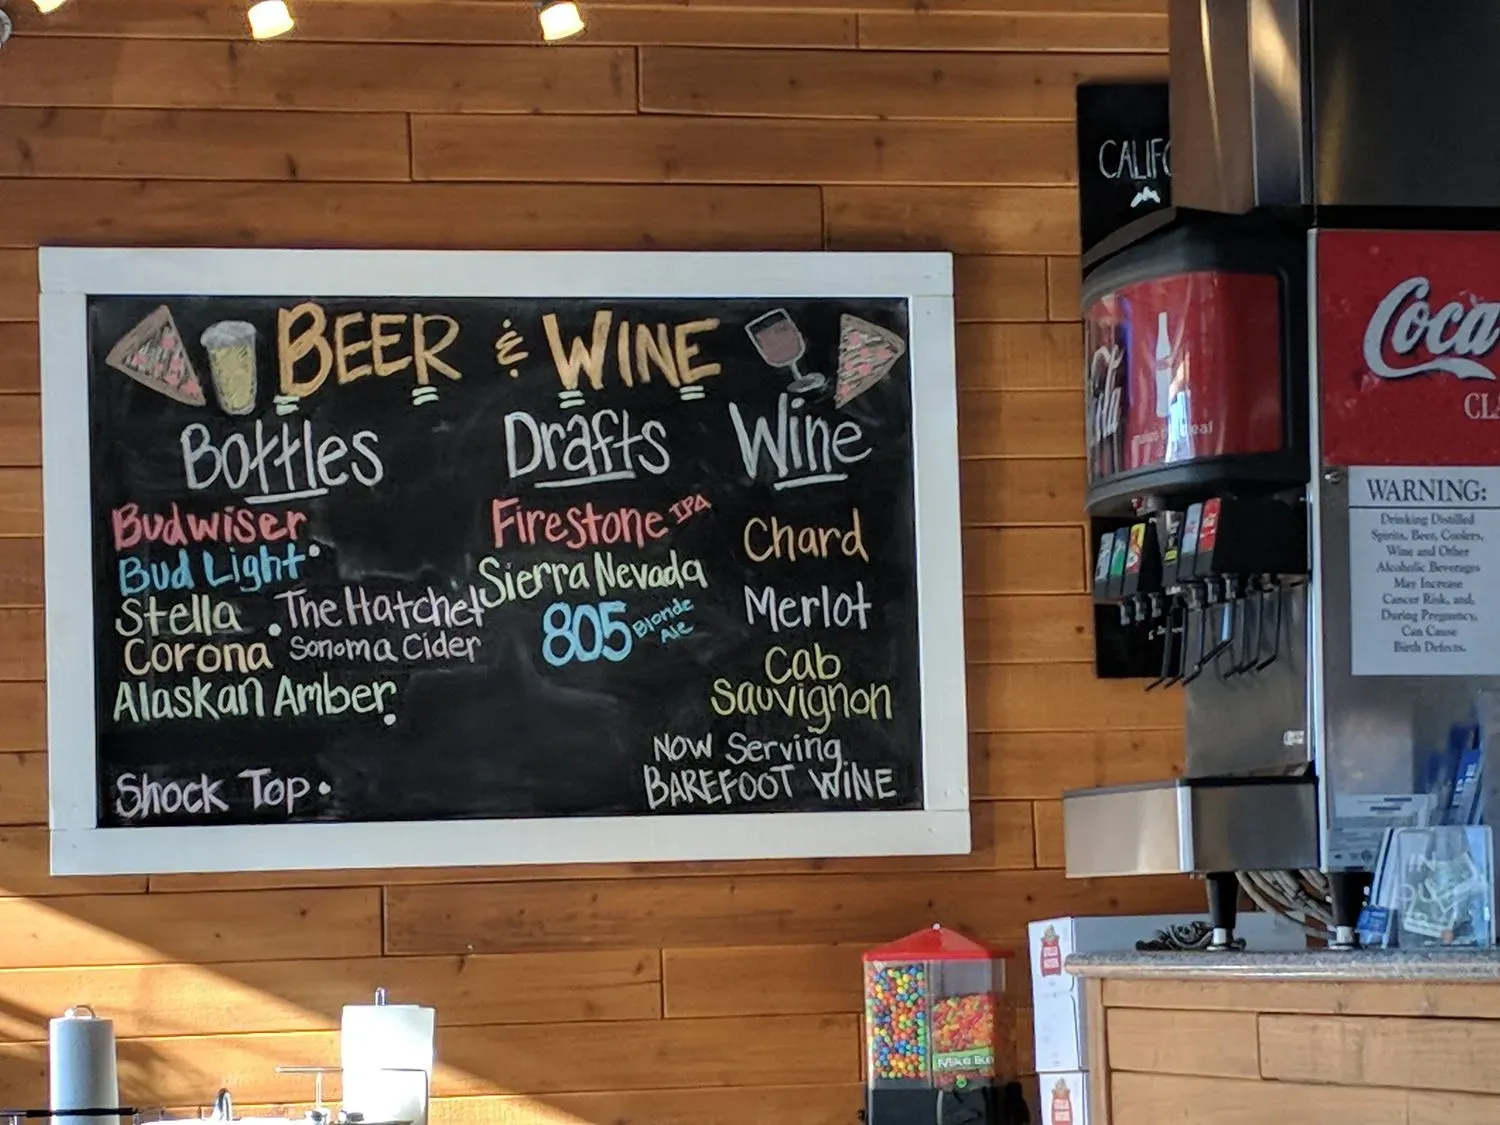 BEER & WINE
Bottles
Budwiser
Bud Light
Stella
Corona
Alaskan Amber
Shock Top
The Hatchet
Sonoma Cider
Drafts
Firestone IPA
Sierra Nevada
805 Blonde
Ale
Wine
Chard
Merlot
Cab
Sauvignon
Now Serving
BAREFOOT WINE
Coca
WARNING:
Drinking Distilled
Spirits, Beer, Coolers,
Wine and Other
Alcoholic Beverages
May Increase
Cancer Risk, and,
During Pregnancy,
Can Cause
Birth Defects.